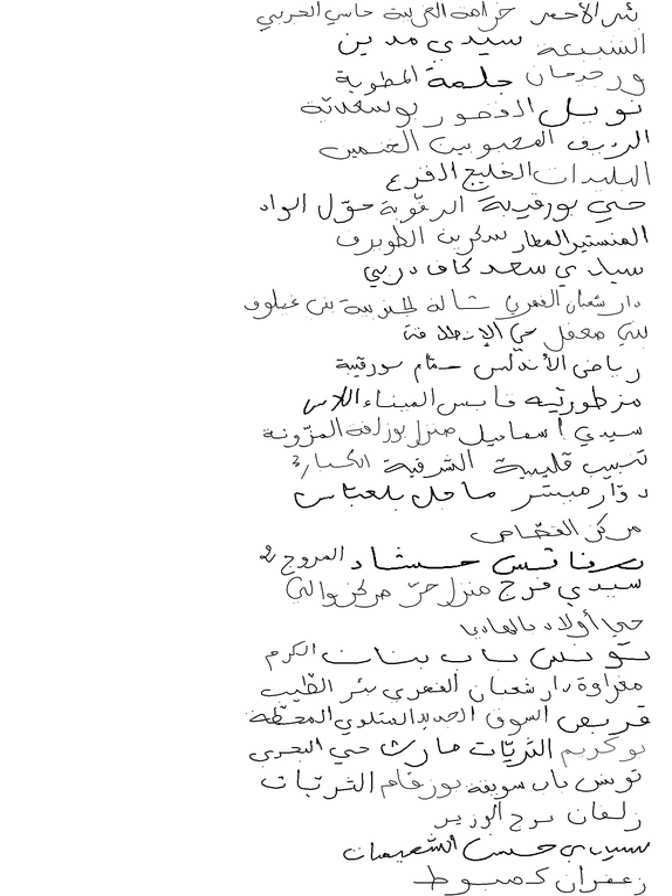 بئر الأحمر خزامة الغربية حاسي الجربي
الشبيعة سيدي مدين
ورجرمان جلمة المطوية
نويل الدخور بوسعدية
الريف المحبوبين الختمين
البليدات الخليج القزع
حي بورقيبة الرقوبة حوّل الواد
المنستير المطار سكرين الطويرف
سيدي سعد كاف دربي
دار شعبان الفهري شالة لجنربية بني غيلوف
بني معقل حي الإنطلاقة
رياض الأندلس حمّام بورقيبة
مزطورية قابس الميناء اللاس
سيدي إسماعيل منزل بوزلفة المزّونة
نحيب قليبية الشرقية الكبارة
دوّار مبشر ماجل بلعبّاس
مركز القصّاص
صفاقس حشاد المروج 2
سيدي فرج منزل حرّ مركز والي
حي أولاد بالهادي
تونس باب بنات الكرم
مغراوة دار شعبان الفهري بئر الطيب
قربص السوق الجديد المتلوي المحطّة
بوكريم الثريّات مارث حي البحري
تونس باب سويقة بوزقام الثريات
زلفان برج الوزير
سيدي حسن الشعيمات
زعفران كصبوط